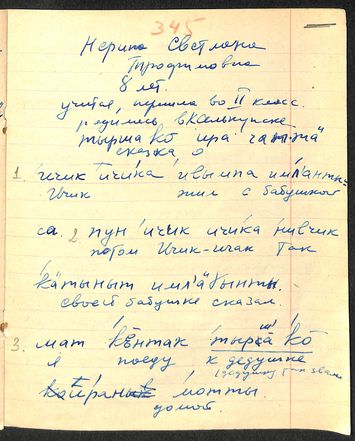 345
Нерина Светлана
Трофимовна
8 лет.
учится, перешла во II класс.
родилась в Келькупске
тырша кȫ ира чаттӓ
сказка о
1. ичик ичика ивымпа имл̕анты-
Ичик жил с бабушкой
са. 2. пун ичик ичика нивчик
потом Ичик-ичак так
кӓтыныт имл̕ӓɣынты.
своей бабушке сказал.
3. мат кӛнтак тырса кȫ
я поеду к дедушке
(дедушку так звали
мотты.
домой.